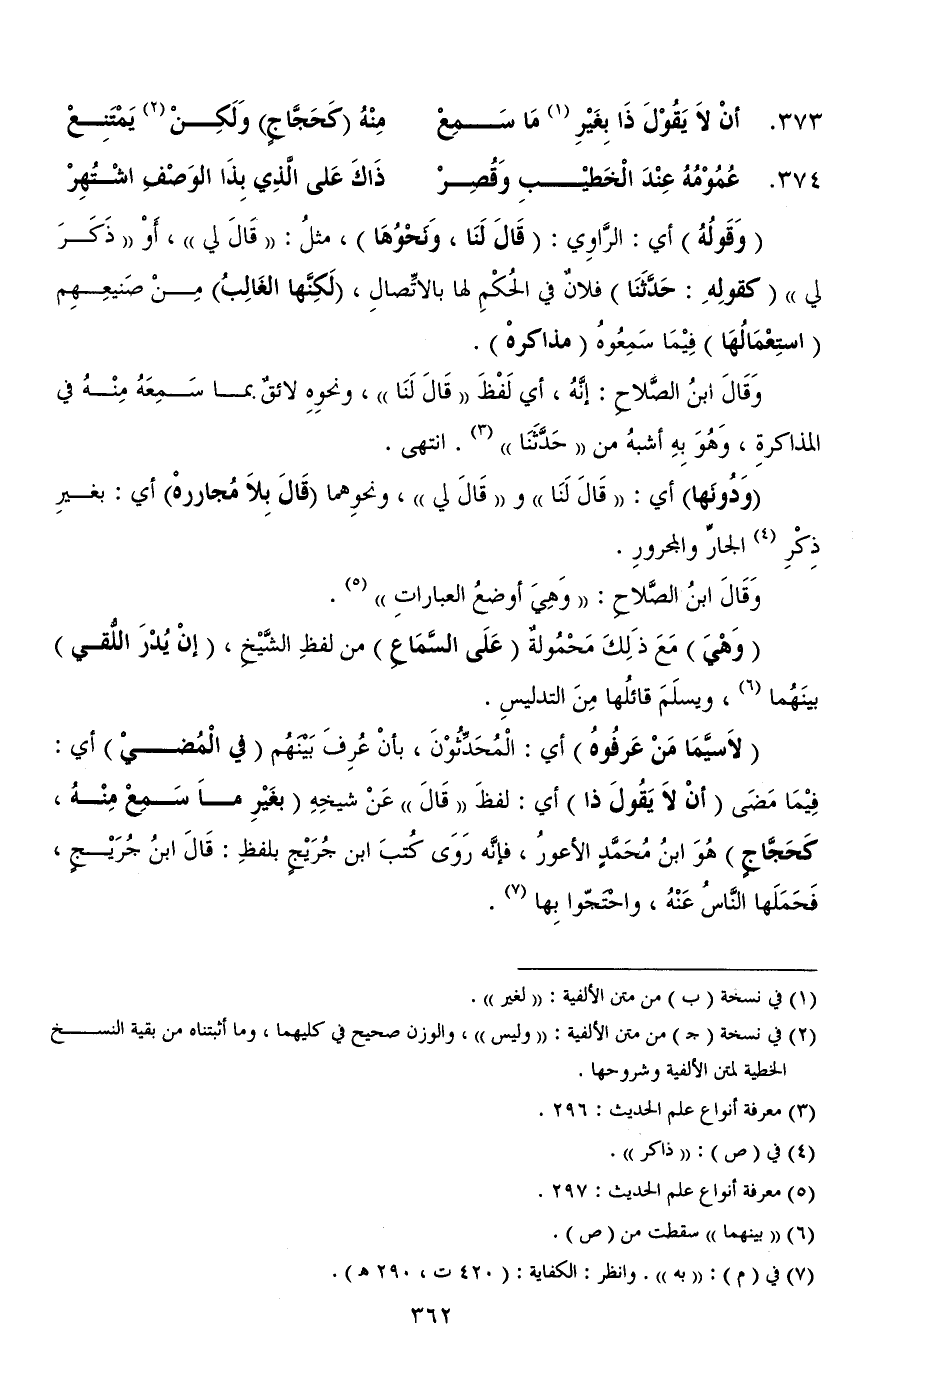 ٣٧٣. أنْ لاَ يَقُوْلَ ذَا بِغَيْرِ (١) مَا سَـــمِعْ مِنْهُ (كَحَجَّاجٍ) وَلَكِــنْ (٢) يَمْتَنِــعْ
٣٧٤. عُمُوْمُهُ عِنْدَ الْخَطِيْـــبِ وَقُصِــرْ ذَاكَ عَلى الَّذِي بِذَا الوَصْفِ اشْــتُهِرْ
( وَقَولُهُ ) أي : الرَّاوِي : ( قَالَ لَنَا ، وَنَحْوُهَا ) ، مثلُ : (( قَالَ لي )) ، أَوْ (( ذَكَــرَ
لي )) ( كقولِهِ : حَدَّثَنَا ) فلانٌ في الحُكْمِ لها بالاتِّصالِ ، (لَكِنَّها الغَالِبُ) مِــنْ صَنيعِــهِم
( استِعْمَالُهَا ) فِيْمَا سَمِعُوهُ ( مذاكرهْ ) .
وَقَالَ ابنُ الصَّلاحِ : إنَّهُ ، أي لَفْظَ (( قَالَ لَنَا )) ، ونحوِهِ لائقٌ بمــا سَــمِعَهُ مِنْــهُ في
المذاكرةِ ، وَهُوَ بِهِ أشبهُ من (( حَدَّثَنَا )) (٣) . انتهى .
(وَدُونَها) أي : (( قَالَ لَنَا )) و (( قَالَ لي )) ، ونحوِهما (قَالَ بِلاَ مُجاررهْ) أي : بغــيرِ
ذِكْرِ (٤) الجارِّ والمجرورِ .
وَقَالَ ابنُ الصَّلاحِ : (( وَهِيَ أوضعُ العباراتِ )) (٥) .
( وَهْيَ ) مَعَ ذَلِكَ مَحْمُولةٌ ( عَلَى السَّمَاعِ ) من لفظِ الشَّيْخِ ، ( إنْ يُدْرَ اللُّقــي )
بينَهُما (٦) ، ويسلَمَ قائلُها مِنَ التدليسِ .
( لاَسيَّمَا مَنْ عَرفُوهُ ) أي : الْمُحَدِّثُوْنَ ، بأنْ عُرِفَ بَيْنَهُم ( في الْمُضــيْ ) أي :
فِيْمَا مَضَى ( أنْ لاَ يَقُولَ ذا ) أي : لفظَ (( قَالَ )) عَنْ شيخِهِ ( بغَيْرِ مــا سَــمِعْ مِنْــهُ ،
كَحَجَّاجٍ ) هُوَ ابنُ مُحَمَّدٍ الأعورُ ، فإنَّه رَوَى كُتبَ ابنِ جُرَيْجٍ بلفظِ : قَالَ ابنُ جُرَيْــجٍ ،
فَحَمَلَها النَّاسُ عَنْهُ ، واحْتَجّوا بِها (٧) .
(١) في نسخة ( ب ) من متن الألفية : (( لغير )) .
(٢) في نسخة ( جـ ) من متن الألفية : (( وليس )) ، والوزن صحيح في كليهما ، وما أثبتناه من بقية النســـخ
الخطية لمتن الألفية وشروحها .
(٣) معرفة أنواع علم الحديث : ٢٩٦ .
(٤) في ( ص ) : (( ذاكر )) .
(٥) معرفة أنواع علم الحديث : ٢٩٧ .
(٦) (( بينهما )) سقطت من ( ص ) .
(٧) في ( م ) : (( به )) . وانظر : الكفاية : ( ٤٢٠ ت ، ٢٩٠ هـ ) .
٣٦٢